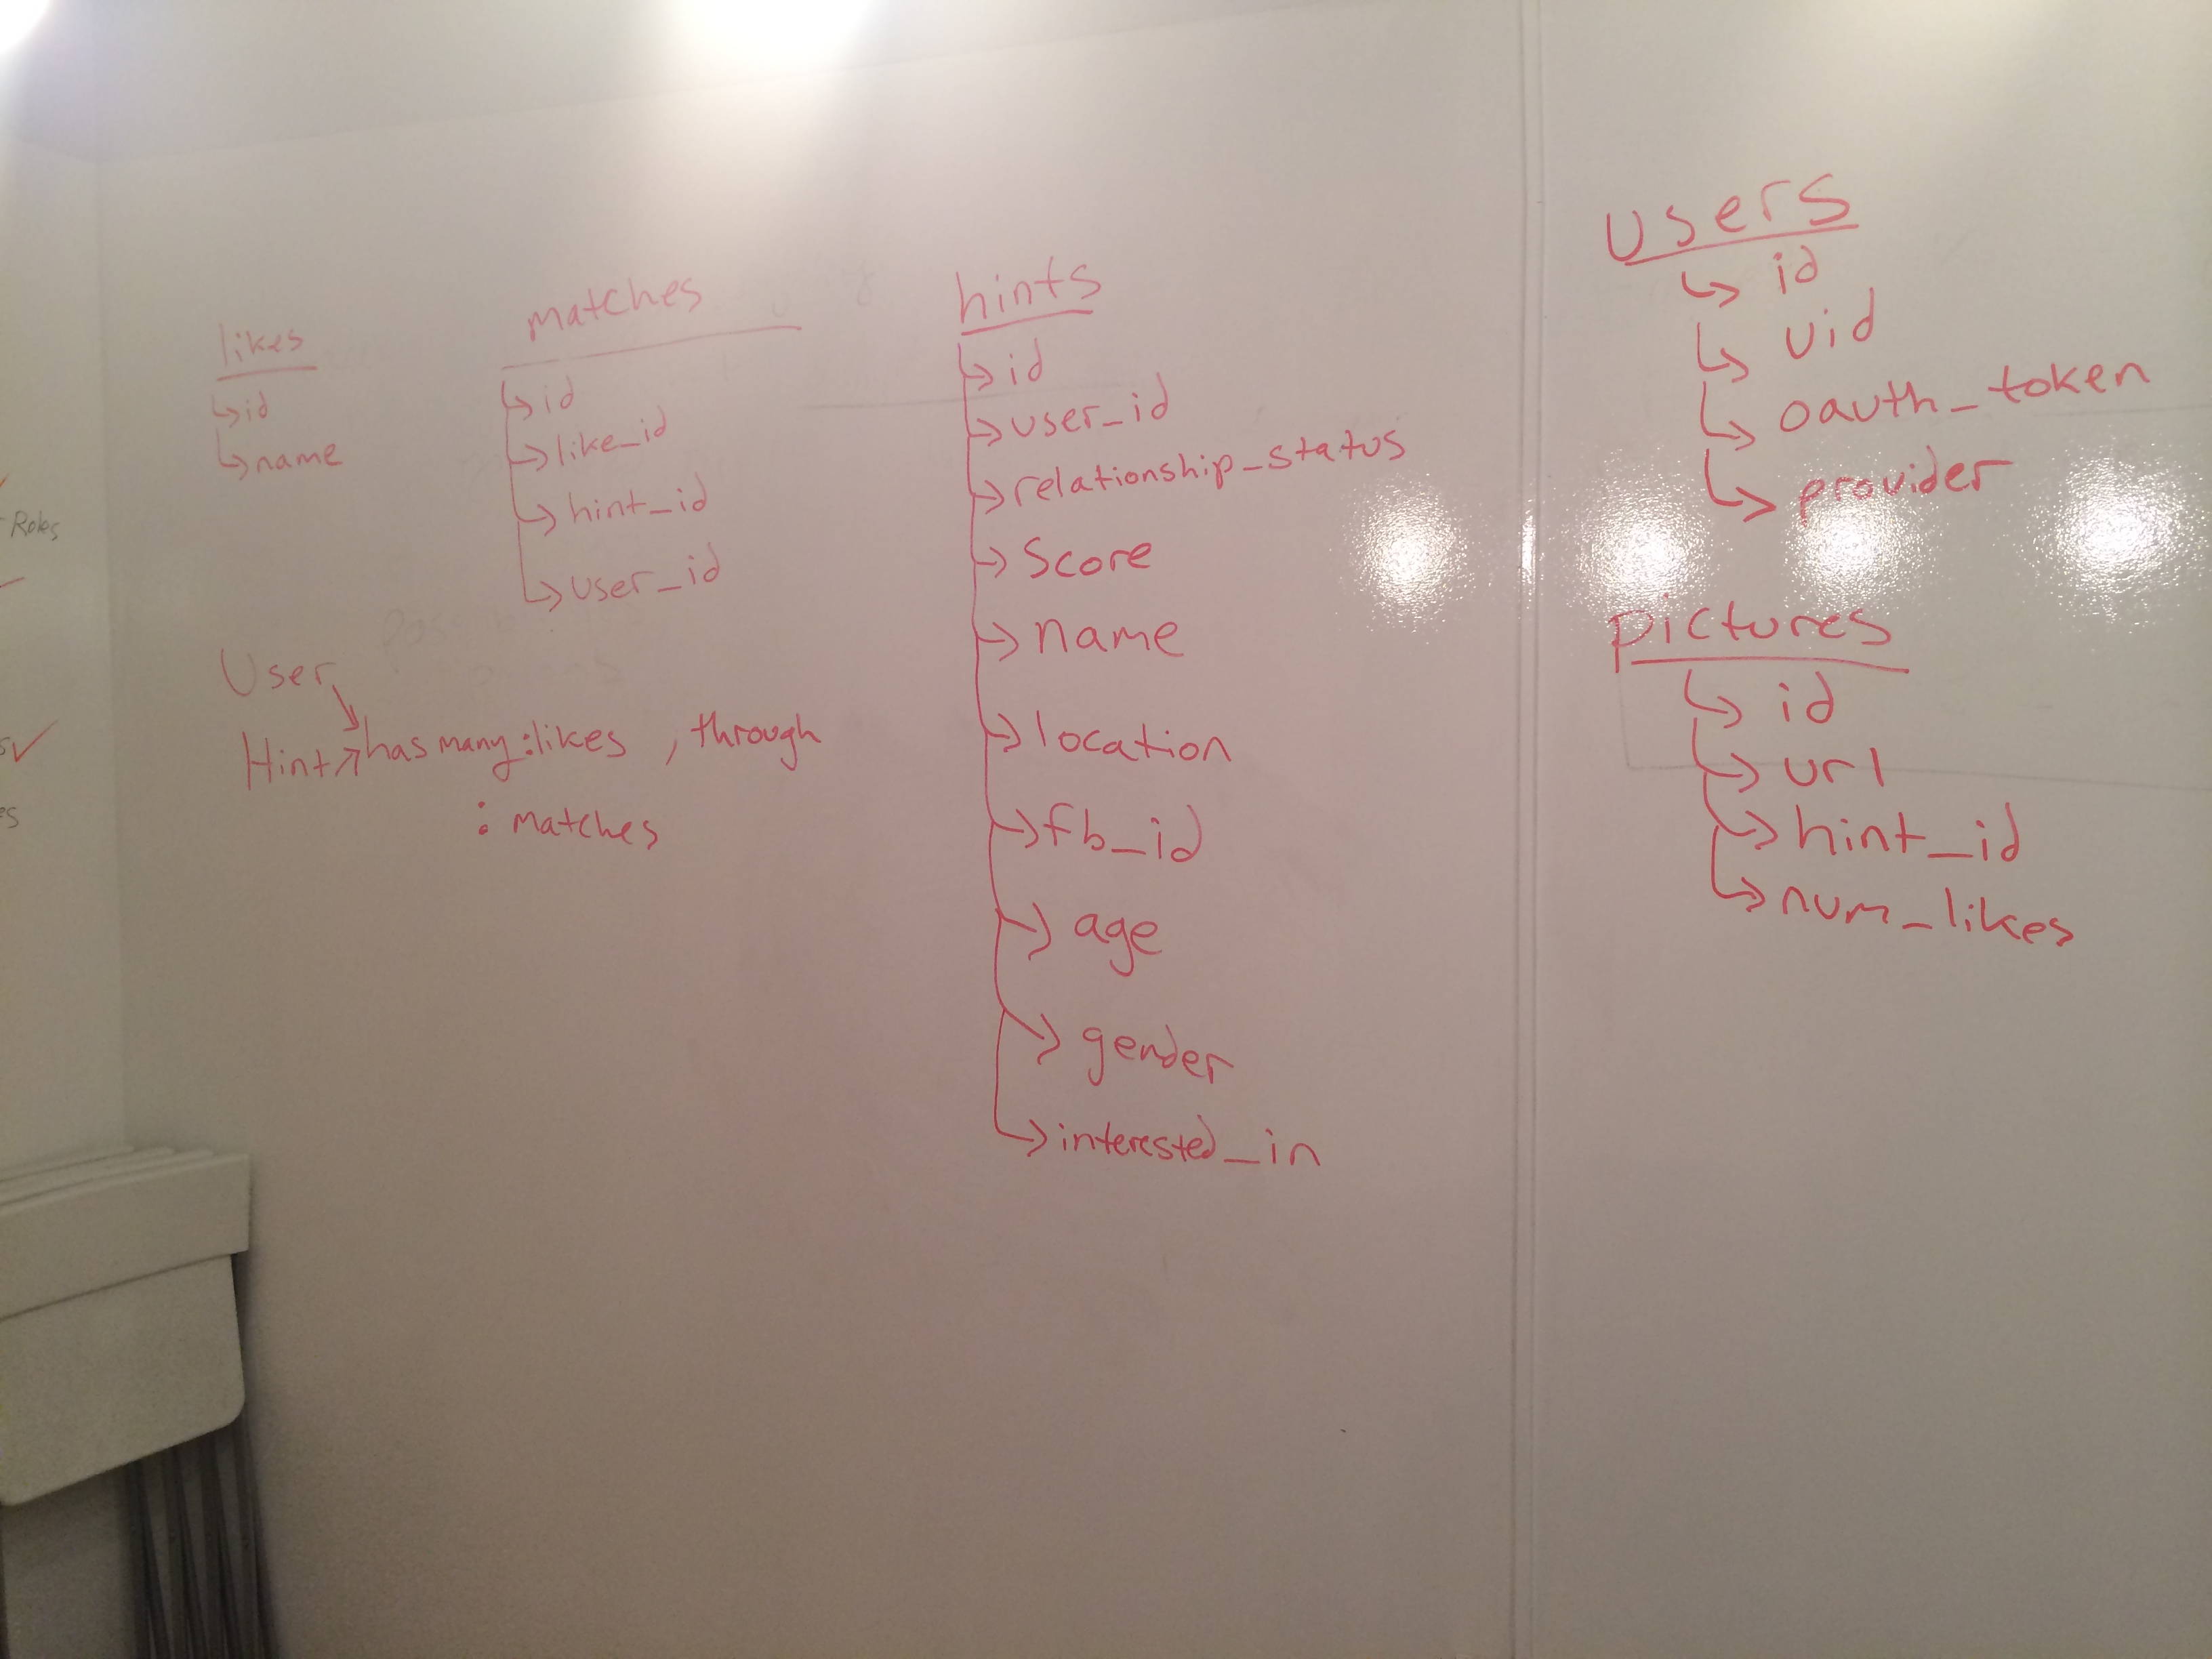 likes
id
name
matches
id
like_id
hint_id
user_id
User
Hint has many :likes , through
: matches
hints
id
user_id
relationship_status
score
name
location
fb_id
age
gender
interested_in
Users
id
uid
oauth_token
provider
pictures
id
url
hint_id
num_likes
Roles